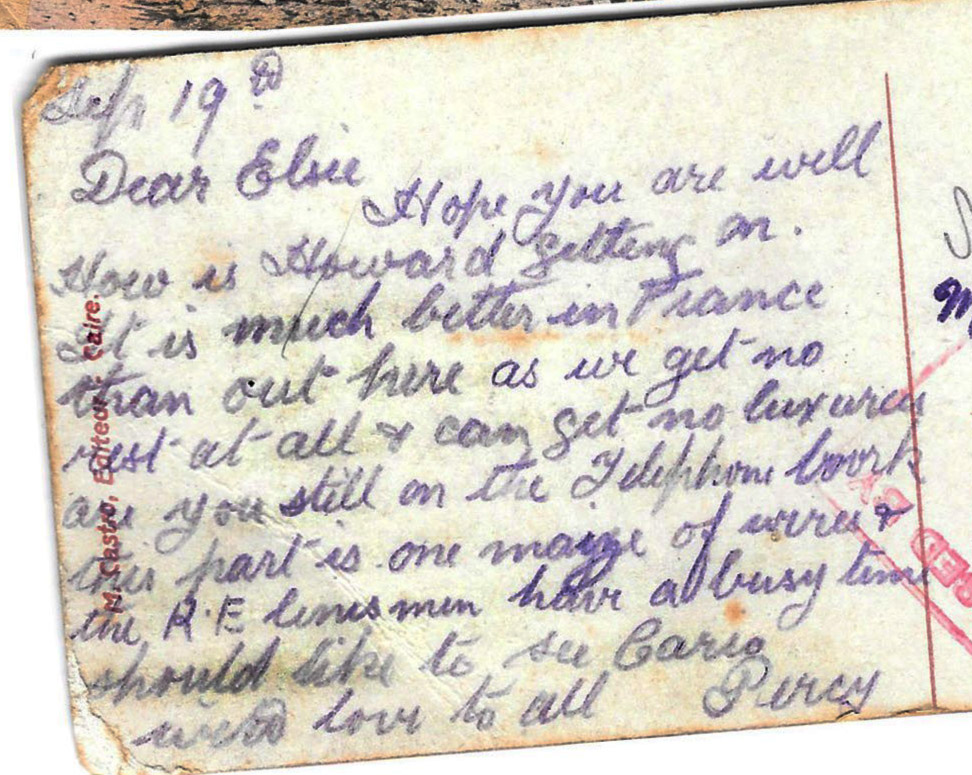 Sep 19th
Dear Elsie
Hope you are well
How is Howard getting on.
It is much better in France
than out here as we get no
rest at all & can get no luxuries
are you still on the Telephone work
this part is one maize of wires &
the R.E linesmen have a busy time
should like to see Cario
with love to all Percy
M. Castro, Editeur. Caire.
ED BY